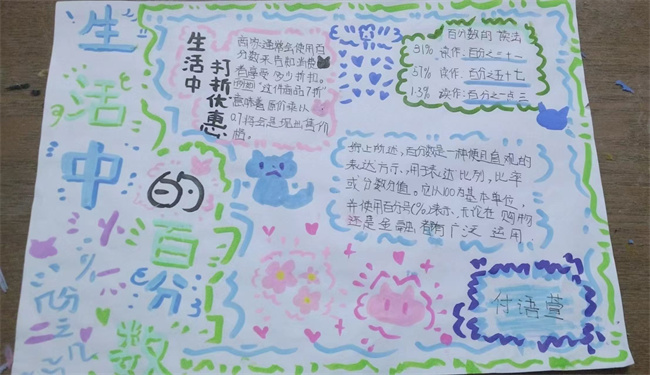 生活中的百分数
生活中
打折优惠
商场通常会使用百
分数来告知消费
者享受多少折扣。
例如"这件商品7折"
意味着原价乘以
0.7将会是现出售价
格
百分数的读法
31% 读作:百分之三十一
57% 读作:百分之五十七
1.3% 读作:百分之一点三
综上所述,百分数是一种使且直观的
表达方示,用于表达比列,比率
或分数分值。它以100为基本单位,
并使用百分号(%)表示,无论在购物
还是金融,都有广泛运用
付语萱